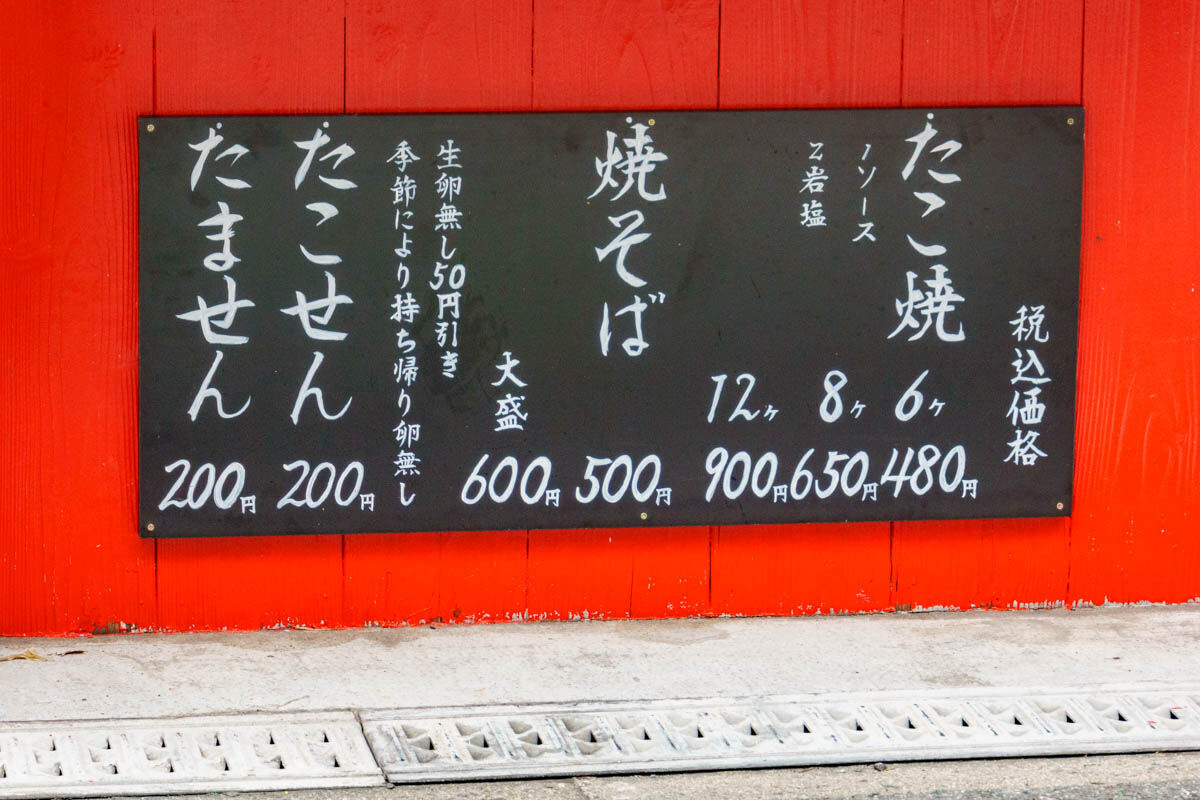 税込価格
たこ焼
ソース
岩塩
6ヶ 480円
8ヶ 650円
12ヶ 900円
焼そば 500円
大盛 600円
生卵無し50円引き
季節により持ち帰り卵無し
たこせん 200円
たません 200円